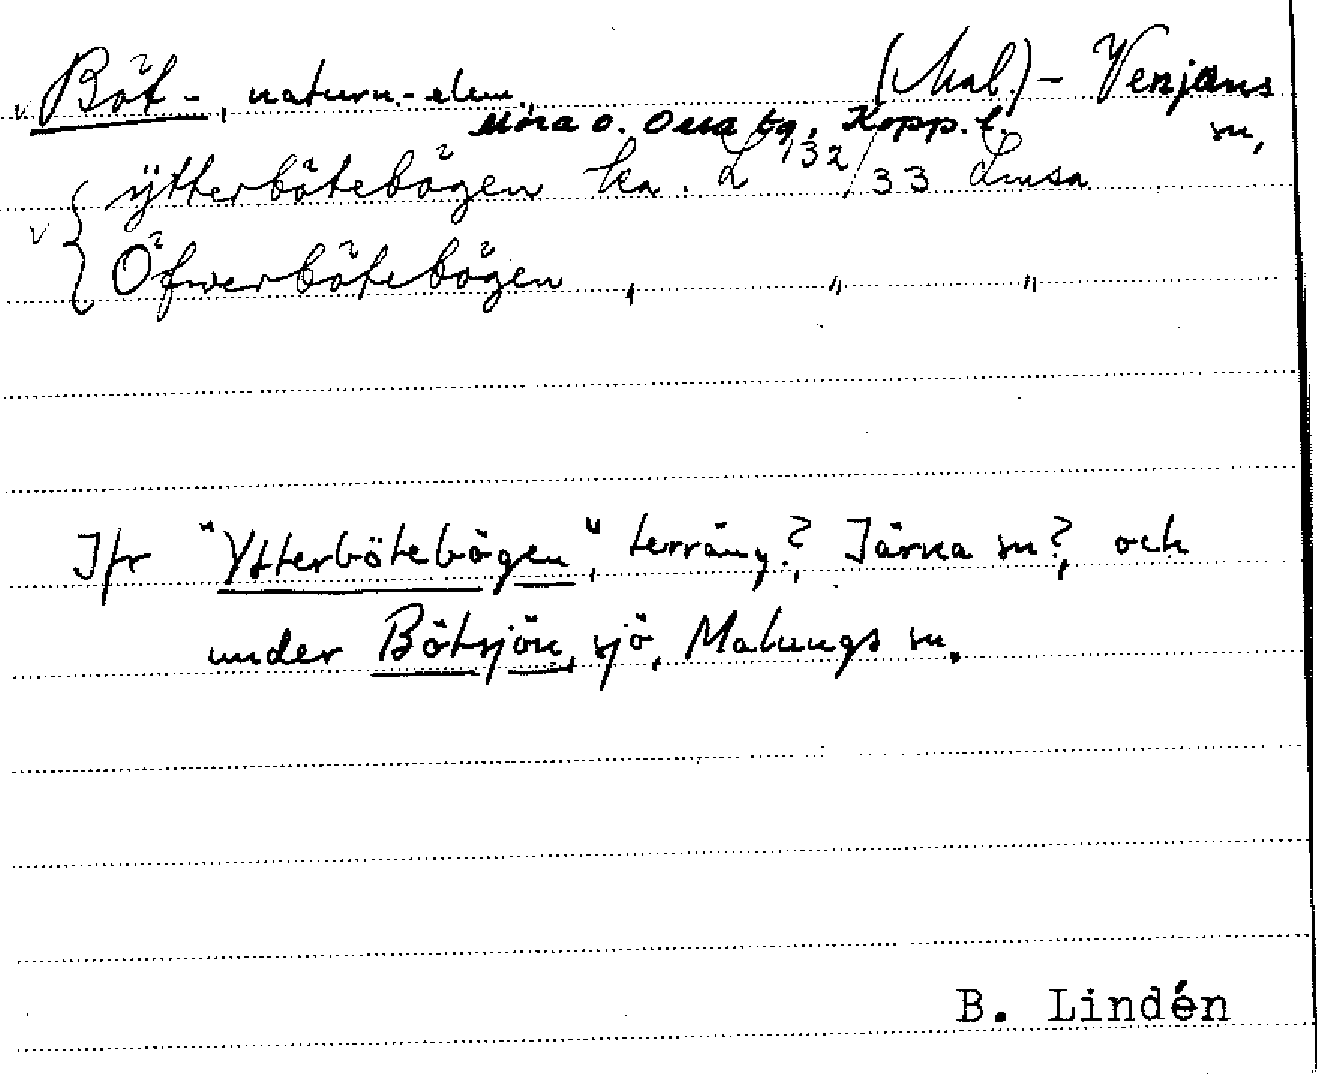 v Böt-, naturn.-elem. (Mal.) - Venjans
Mora o. Orsa tg, Kopp. l. sn,
v { ytterbötebögen ka. L 132/33 Limsa
Öfwerbötebögen , " "
Jfr "Ytterbötebögen", terräng?, Järna sn?, och
under Bötsjön, sjö, Malungs sn.
B. Lindén